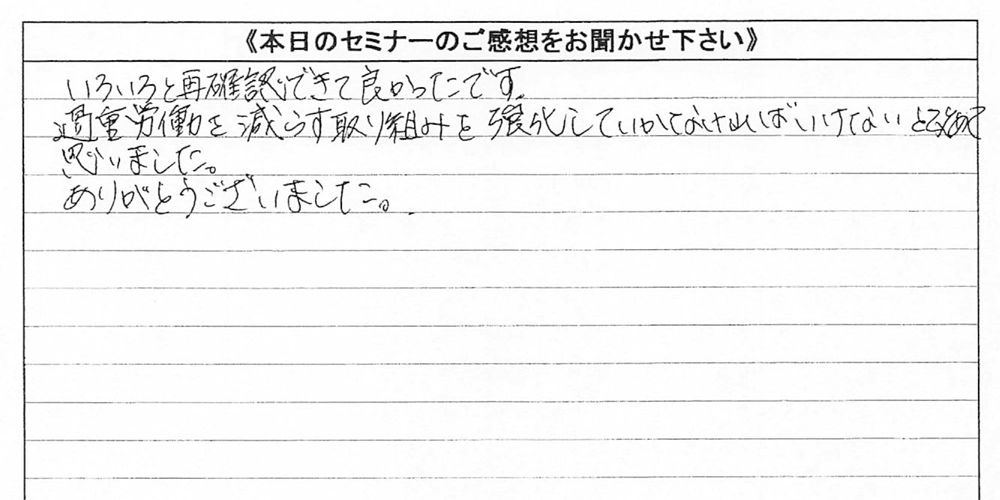 《本日のセミナーのご感想をお聞かせ下さい》
いろいろと再確認できて良かったです。
過重労働を減らす取り組みを強化していかなければいけないと改めて
思いました。
ありがとうございました。